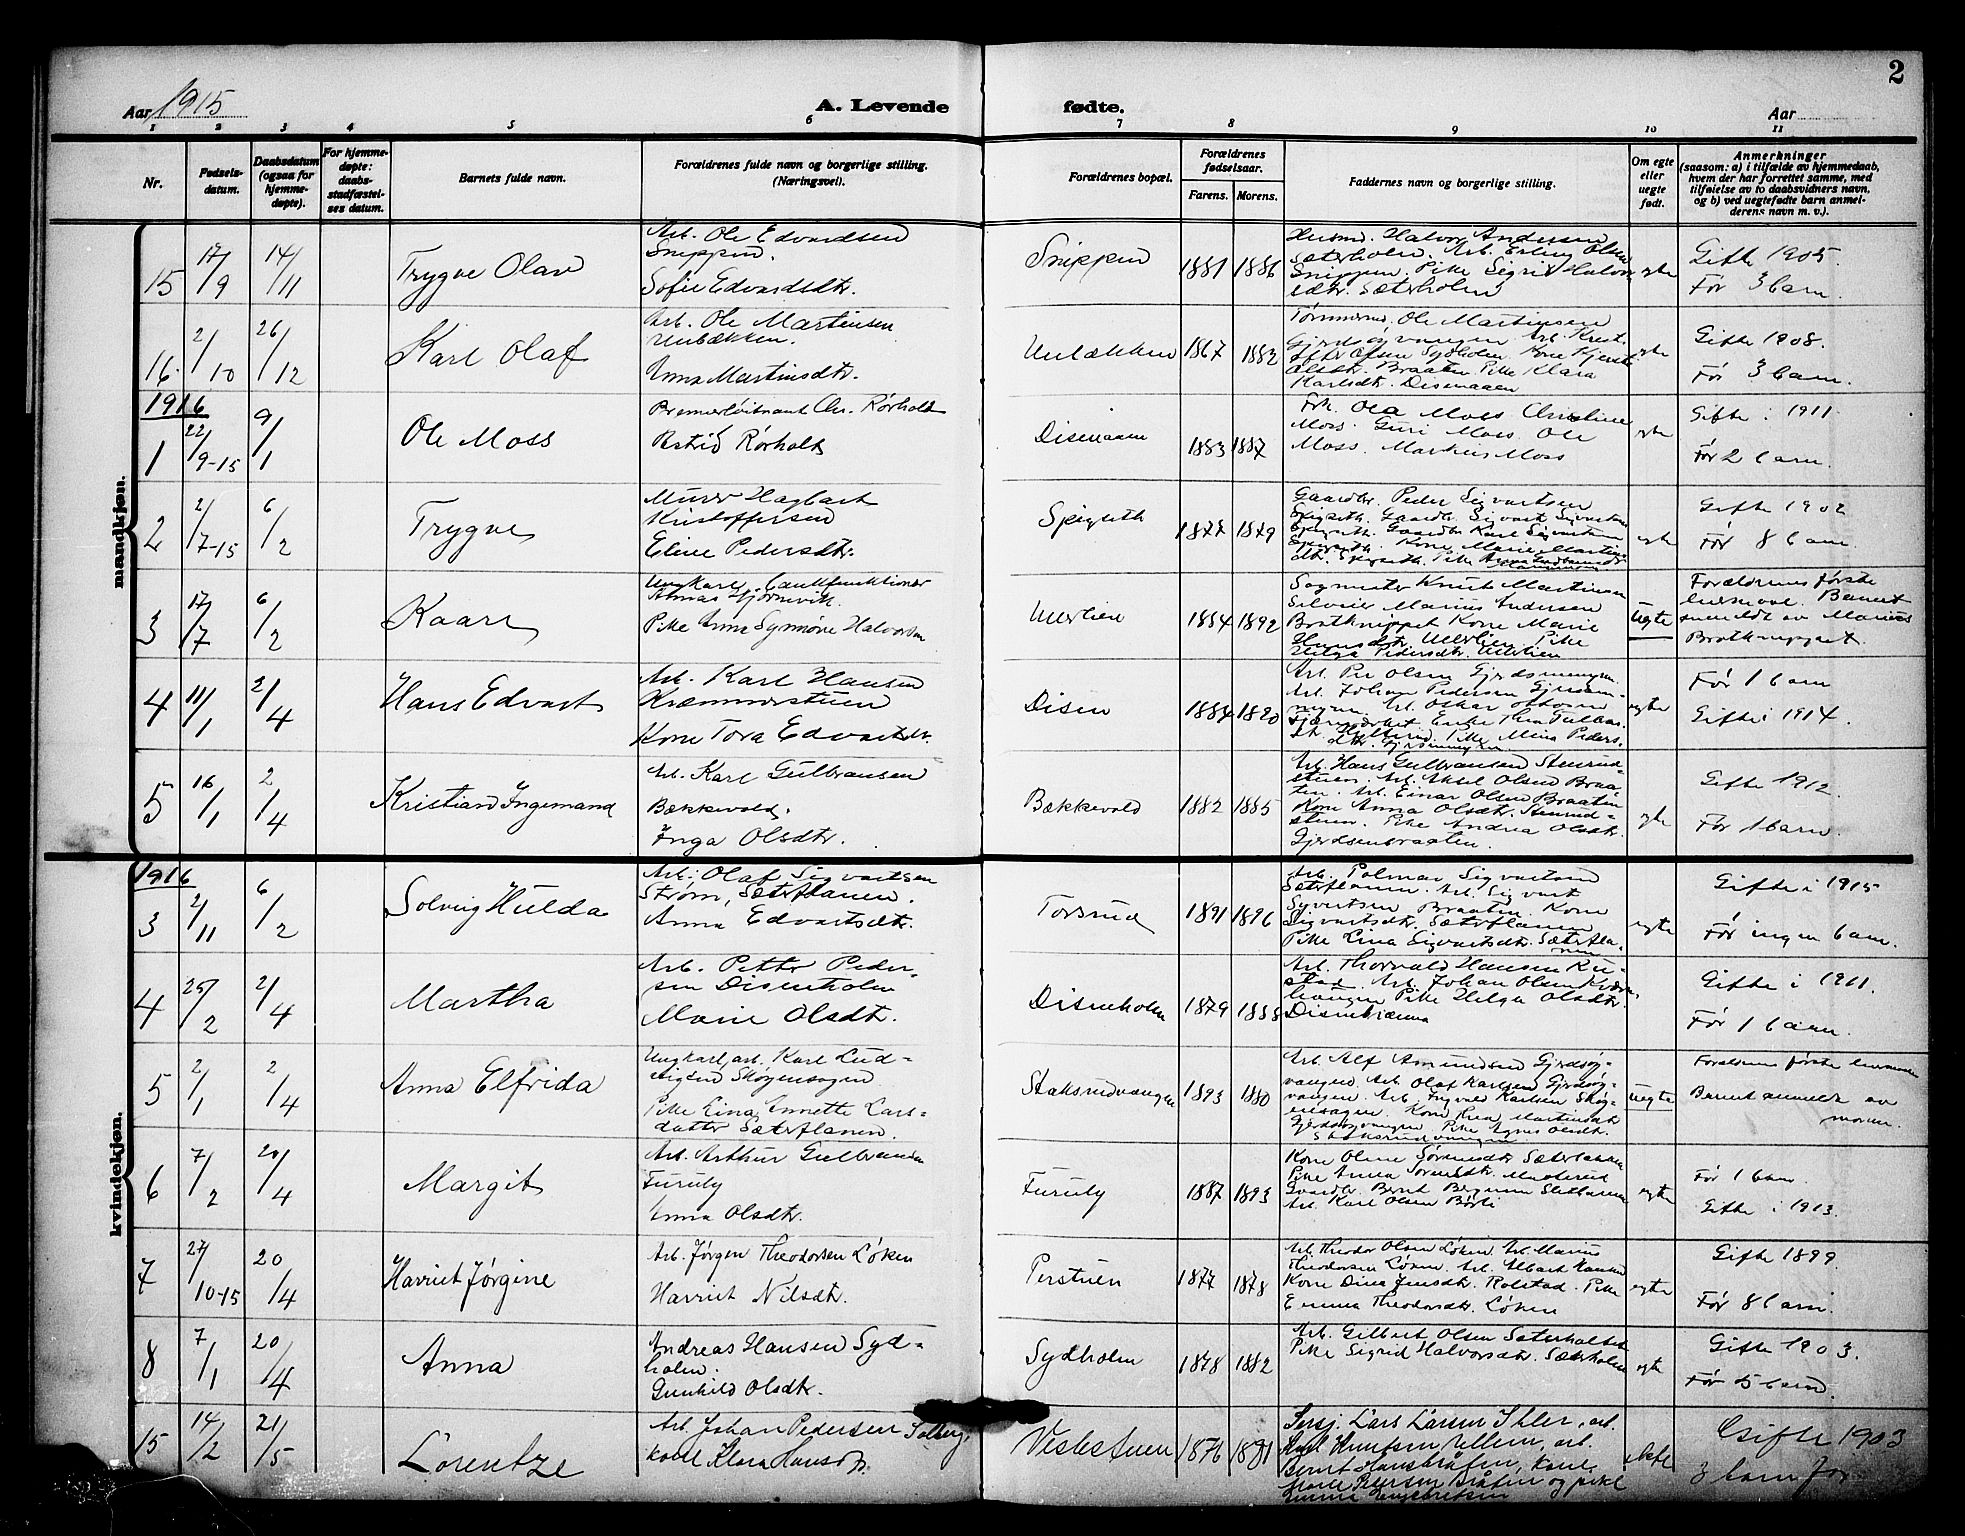 2
Aar 1915
A. Levende
fødte.
Aar
1 2 3 4 5 6 7 8 9 10 11
Nr.
Fødsels-
datum.
Daabsdatum
(ogsaa for
hjemme-
døpte).
For hjemme-
døpte:
daabs-
stadfæstel-
ses datum.
Barnets fulde navn.
Forældrenes fulde navn og borgerlige stilling.
(Næringsvei).
Forældrenes bopæl.
Forældrenes
fødselsaar.
Farens. Morens.
Faddernes navn og borgerlige stilling.
Om egte
eller
uegte
født.
Anmerkninger
(saasom: a) i tilfælde av hjemmedaab,
hvem der har forrettet samme, med
tilføielse av to daabsvidners navn,
og b) ved uegtefødte barn anmel-
derens navn m. v.).
mandkjøn.
15
17/9
14/11
Trygve Olav
Arb. Ole Edvardsen
Snippen.
Sofie Edvardsdtr.
Snippen
1881 1886
Husmd. Halvor Andersen
Sæterholen. Arb. Erling Olsen
Snippen. Pike Sigrid Halvors-
dtr. Sæterholen
egte
Gifte 1905.
Før 3 barn.
16.
2/10
26/12
Karl Olaf
Arb. Ole Martinsen
Anna Martinsdtr.
1867 1882
Ole Martinsen
Arb. Krest.
Olsen Sydholen Kone
Olsdtr. Braaten Pike Klara
Karlsdtr. Disenaaen
egte
Gifte 1908.
Før 3 barn.
1916
1
22/9-15
9/1
Ole Moss
Premierløitnant Chr. Rørholt
Astrid Rørholt
Disenaaen
1883 1887
Frk. Ola Moss Christine
Moss. Guri Moss. Ole
Moss. Markus Moss
egte
Gifte i 1911.
Før 2 barn.
2
2/7-15
6/2
Trygve
Murer Hagbart
Kristoffersen
Eline Pedersdtr.
Spigseth
1877 1879
Gaardbr. Peder Sigvartsen
Spigseth. Gaardbr. Sigvart Sigvartsen
Spigseth. Gaardbr. Karl Sigvartsen
Spigseth. Kone Marie Martins-
dtr. Spigseth. Pike Anna
egte
Gifte 1902
Før 8 barn.
3
17/7
6/2
Kaare
Ungkarl, bankfunktionær
Pike Anna Synnøve Halvorsen
Ullerlien
1884 1892
Sagmester Knut Martinsen
Marius Andersen
Bratknippet Kone Marie
Hansdtr. Ullerlien Pike
Helga Pedersdtr. Ullerlien
Uegte
Forældrenes første
leiermaal. Barnet
anmeldt av Marius
Bratknippet.
4
11/1
2/4
Hans Edvart
Arb. Karl Hansen
Kræmmerstuen
Kone Tora Edvartsdtr.
Disen
1884 1890
Arb. Per Olsen
Arb. Johan Pedersen
Arb. Oskar Ottosen
Pike Mina Peders-
dtr.
egte
Før 1 barn
Gifte i 1914.
5
16/1
2/4
Kristian Ingemand
Arb. Karl Gulbransen
Bækkevold.
Inga Olsdtr.
Bækkevold
1882 1885
Arb. Hans Gulbransen Stenrud-
stuen. Arb. Aksel Olsen Braa-
ten. Arb. Einar Olsen Braaten
Kone Anna Olsdtr. Stenrud-
stuen. Pike Andrea Olsdtr.
Gjerdsenbraaten.
egte
Gifte 1912.
Før 1 barn.
kvindekjøn.
1916
3
2/11
6/2
Solveig Hulda
Arb. Olaf Sigvartsen
Strøm, Sæterflanen.
Anna Edvartsdtr.
Torsrud
1891 1896
Arb. Polmar Sigvartsen
Sæterflanen. Arb. Sigvart
Syvertsen Braaten. Kone
Sigvartsdtr. Sæterflanen
Pike Lina Sigvartsdtr. Sæterfla-
nen
egte
Gifte i 1915
Før ingen barn.
4
25/2
2/4
Martha
Arb. Petter Peder-
sen Disenholen
Marie Olsdtr.
Disenholen
1879 1888
Arb. Thorvald Hansen Ru-
stad. Arb. Johan Olsen
Pike Helga Olsdtr.
Gifte i 1911.
Før 1 barn.
5
2/1
2/4
Anna Elfrida
Ungkarl, arb. Karl Lud-
vigsen Skøgensagen
Pike Lina Annette Lars-
datter Sæterflanen.
Staksrudvangen
1893 1880
Arb. Alf Amundsen Gjerdsøy-
vangen. Arb. Olaf Karlsen Gjerdsøy-
vangen. Arb. Ingvald Karlsen Skøg-
ensagen. Kone Thea Martinsdtr.
Gjerdsøyvangen. Pike Agnes Olsdtr.
Staksrudvangen
uegte
Foreldrenes første leiermaal
Barnet anmeldt av
moren.
6
7/2
20/4
Margit
Arb. Arthur Gulbransen
Furuly
Anna Olsdtr.
Furuly
1887 1893
Kone Oline Sørensdtr. Sæterbakken
Pike Anna Sørensdtr.
Gaardbr. Bernt Bergersen
Arb. Karl Olsen Børli
egte
Før 1 barn.
Gifte i 1913.
7
27/10-15
20/4
Harriet Jørgine
Arb. Jørgen Theodorsen Løken
Harriet Nilsdtr.
Perstuen
1877 1878
Arb. Theodor Olsen Løken. Arb. Marius
Theodorsen Løken. Arb. Albert Hansen
Kone Dina Jensdtr. Rolstad. Pike
Emma Theodorsdtr. Løken
egte
Gifte 1899.
Før 8 barn.
8
7/1
20/4
Anna
Andreas Hansen Syd-
holen.
Gunhild Olsdtr.
Sydholen
1878 1882
Arb. Gilbert Olsen Sæterholen
Pike Sigrid Halvorsdtr. Sæterholen
egte
Gifte 1903.
Før 5 barn.
15
14/2
21/5
Lorentze
Arb. Johan Pedersen Solberg,
kone Klara Hansd.
Veslestuen
1876 1881
Sersj. Lars Larsen Ihler, arb.
Karl Knutsen Ullern, arb.
Bernt Hansen Bråten, Kone
Marte Petersen Bråten og pike
ekte
Gifte 1903
3 barn før